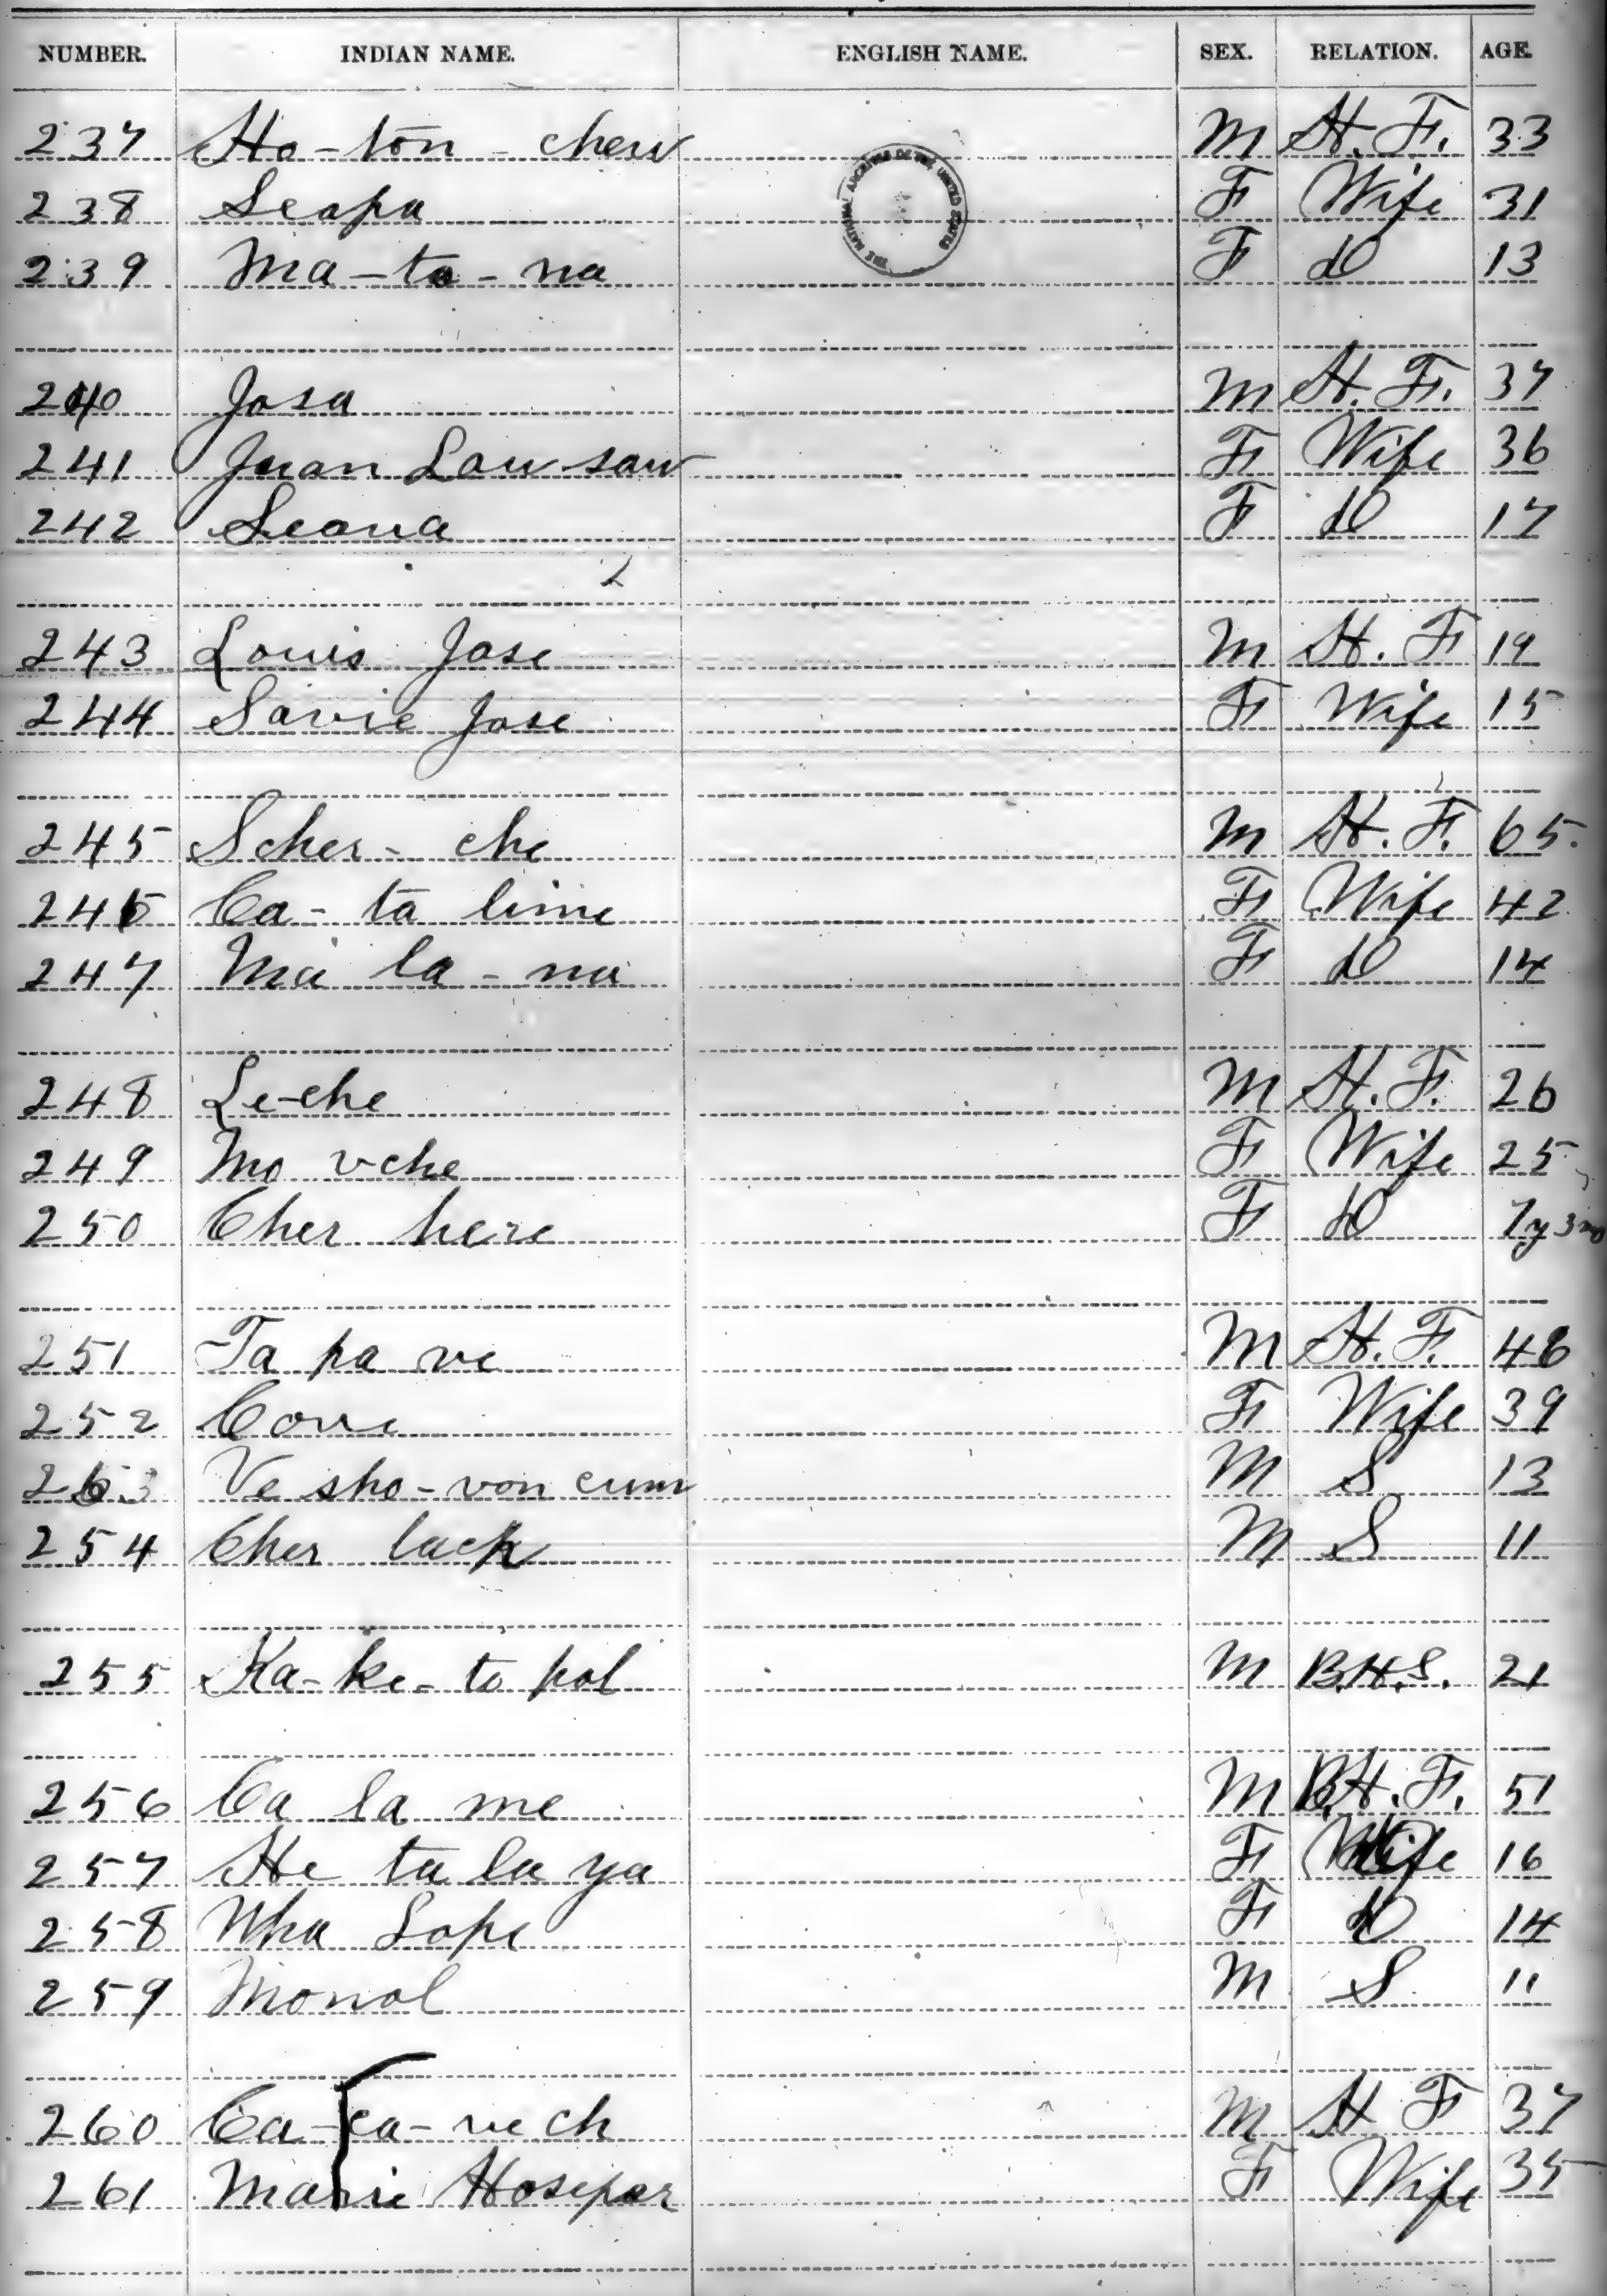 NUMBER. INDIAN NAME. ENGLISH NAME. SEX. RELATION. AGE.
237 Ho-tōn-chew M H.F. 33
THE NATIONAL ARCHIVES OF THE UNITED STATES
238 Seapa F Wife 31
239 Ma-ta-na F D 13
240 Josa M H.F. 37
241 Juan Lou-sow F Wife 36
242 Leona F D 17
243 Louis Jose M H.F 19
244 Savie Jose F Wife 15
245 Scher-che M H.F. 65.
246 Ca-ta lime F Wife 42
247 Ma la-na F D 14
248 Le-che M H.F. 26
249 Mo vche F Wife 25
250 Cher here F D 1y 3mo
251 Ta pa ve M H.F. 46
252 Cove F Wife 39
253 Ve sho-von cum M S 13
254 Cher lack M S 11
255 Ka-ke-to pol M B.H.S. 21
256 Ca la me M H.F. 51
257 He ta la ya F 16
258 Wha Lope F D 14
259 Monol M S 11
260 Ca-ca-ve ch M H F 37
261 Marie Hosepar F Wife 35